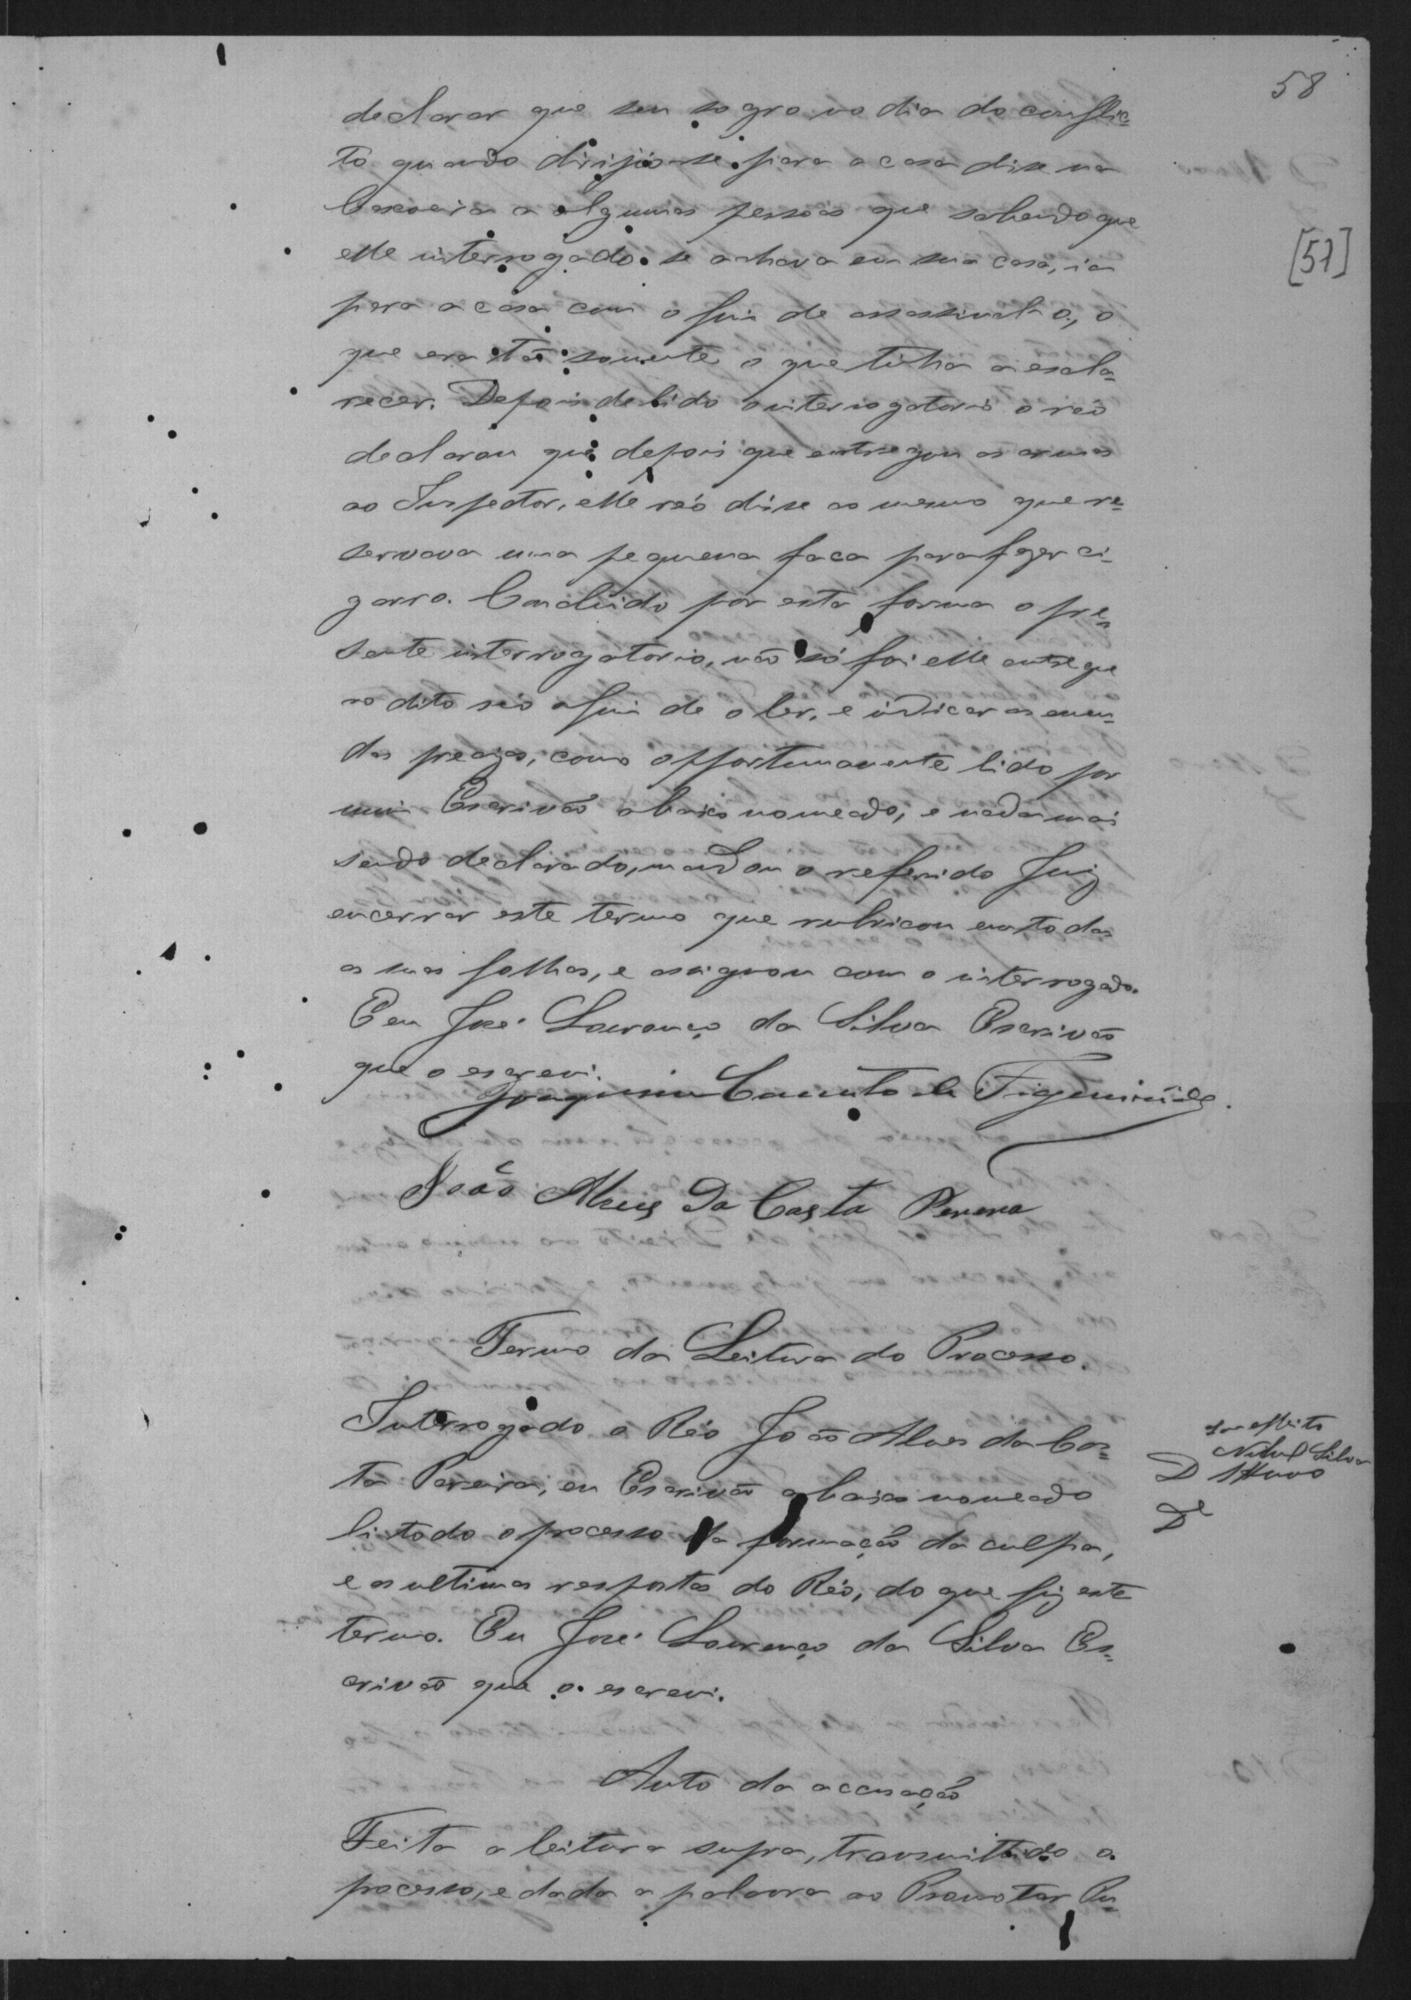 58
[57]
declarar que seu sogro no dia do conflic-
to quando dirijio-se para a casa disse na
Cascoeira a algumas pessoas que sabendo que
elle interrogado se achava em sua casa, ia
para a casa com o fim de assassinal-o, o
que era tão somente o que tinha a escla-
recer. Depois de lido o interrogatorio o reo
declarou que depois que entregou as armas
ao Inspector, elle réo disse ao mesmo que re-
servava uma pequena faca para fazer ci-
garro. Concluido por esta forma o pre-
sente interrogatorio, não só foi elle entregue
ao dito réo afim de o ler, e indicar as emen-
das precizas, como opportunamente lido por
mim Escrivão abaixo nomeado; e nada mais
sendo declarado, mandou o referido Juiz
encerrar este termo que rubricou em todas
as suas folhas, e assignou com o interrogado.
E eu José Lourenço da Silva Escrivão
que o escrevi.
Joaquim Canuto de Figueirêdo
João Alves da Costa Perera
Termo da Leitura do Processo.
Interrogado o Réo João Alves da Cos-
ta Pereira, eu Escrivão abaixo nomeado
li todo o processo da formação da culpa,
e as ultimas respostas do Réo, do que fiz este
termo. Eu José Lourenço da Silva Es-
crivão que o escrevi.
Silva
Auto da accusação
Feita a leitura supra, transmittido o
processo, e dada a palavra ao Promotor Pu-